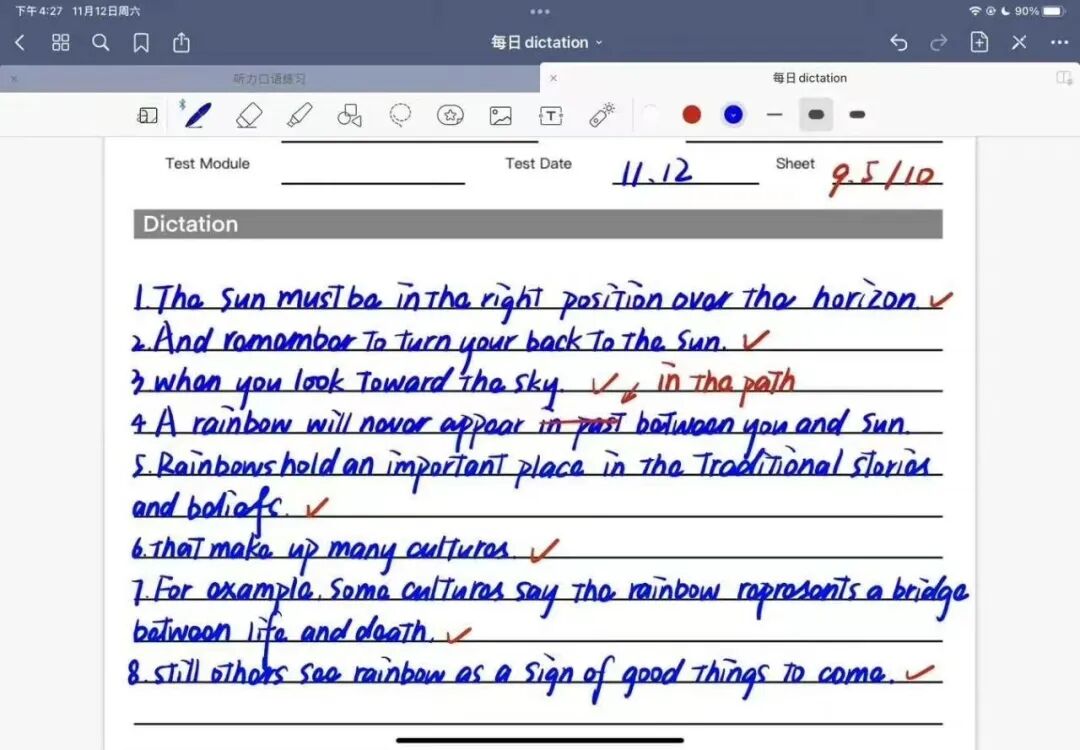 下午4:27 11月12日周六
90%
每日 dictation
听力口语练习
每日 dictation
Test Module Test Date 11.12 Sheet 9.5/10
Dictation
1. The sun must be in the right position over the horizon ✓
2. And remember to turn your back to the sun. ✓
3 when you look toward the sky. ✓ in the path
4 A rainbow will never appear in past between you and sun.
5. Rainbows hold an important place in the traditional stories
and beliefs. ✓
6. that make up many cultures. ✓
7. For example, some cultures say the rainbow represents a bridge
between life and death. ✓
8. still others see rainbow as a sign of good things to come. ✓